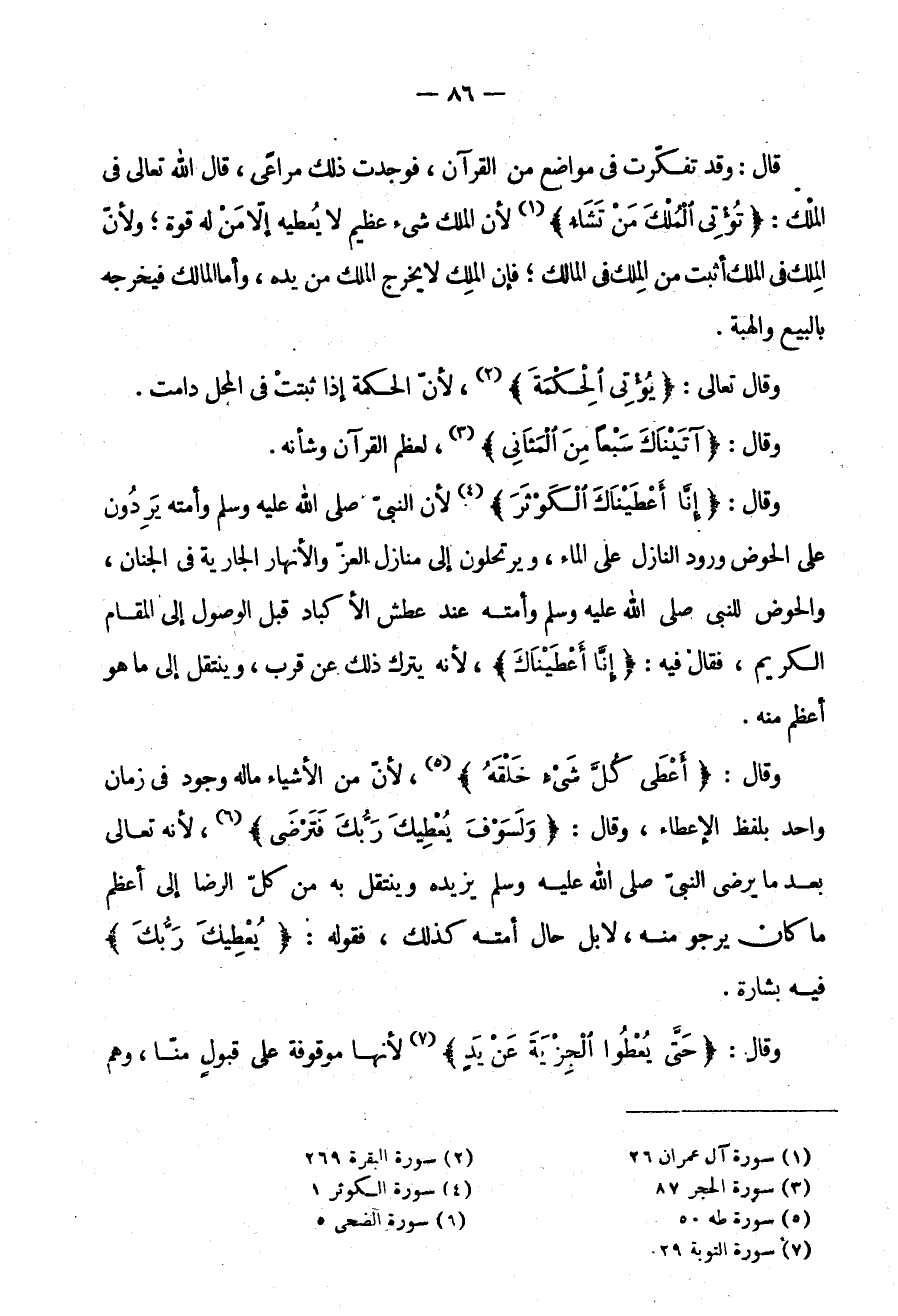 — ٨٦ —
قال : وقد تفكّرت فى مواضع من القرآن ، فوجدت ذلك مراعًى ، قال الله تعالى فى
المْلك : ﴿ تُؤْتِى ٱلْمُلْكَ مَنْ تَشَاءِ ﴾ (١) لأن الملك شىء عظيم لا يُعطيه إلّا مَنْ له قوة ؛ ولأنّ
المِلك فى الملك أثبت من المِلك فى المالك ؛ فإن الملِك لا يخرج الملك من يده ، وأما المالك فيخرجه
بالبيع والهبة .
وقال تعالى : ﴿ يُؤْتِى ٱلْحِكْمَةَ ﴾ (٢) ، لأنّ الحكمة إذا ثبتتْ فى المحل دامت .
وقال : ﴿ آتَيْنَاكَ سَبْعاً مِنَ ٱلْمَثَانِى ﴾ (٣) ، لعظم القرآن وشأنه .
وقال : ﴿ إِنَّا أَعْطَيْنَاكَ ٱلْكَوْثَرَ ﴾ (٤) لأن النبىّ صلى الله عليه وسلم وأمته يَرِدُون
على الحوض ورود النازل على الماء ، ويرتحلون إلى منازل العزّ والأنهار الجارية فى الجنان ،
والحوض للنبى صلى الله عليه وسلم وأمته عند عطش الأكباد قبل الوصول إلى المقام
الكريم ، فقال فيه : ﴿ إِنَّا أَعْطَيْنَاكَ ﴾ ، لأنه يترك ذلك عن قرب ، وينتقل إلى ما هو
أعظم منه .
وقال : ﴿ أَعْطَى كُلَّ شَىْءٍ خَلْقَهُ ﴾ (٥) ، لأنّ من الأشياء ماله وجود فى زمان
واحد بلفظ الإعطاء ، وقال : ﴿ وَلَسَوْفَ يُعْطِيكَ رَبُّكَ فَتَرْضَى ﴾ (٦) ، لأنه تعالى
بعد ما يرضى النبىّ صلى الله عليه وسلم يزيده وينتقل به من كلّ الرضا إلى أعظم
ما كان يرجو منه ، لا بل حال أمته كذلك ، فقوله : ﴿ يُعْطِيكَ رَبُّكَ ﴾
فيه بشارة .
وقال : ﴿ حَتَّى يُعْطُوا ٱلْجِزْيَةَ عَنْ يَدٍ ﴾ (٧) لأنها موقوفة على قبولٍ منّا ، وهم
(١) سورة آل عمران ٢٦ (٢) سورة البقرة ٢٦٩
(٣) سورة الحجر ٨٧ (٤) سورة الكوثر ١
(٥) سورة طه ٥٠ (٦) سورة الضحى ٥
(٧) سورة التوبة ٢٩